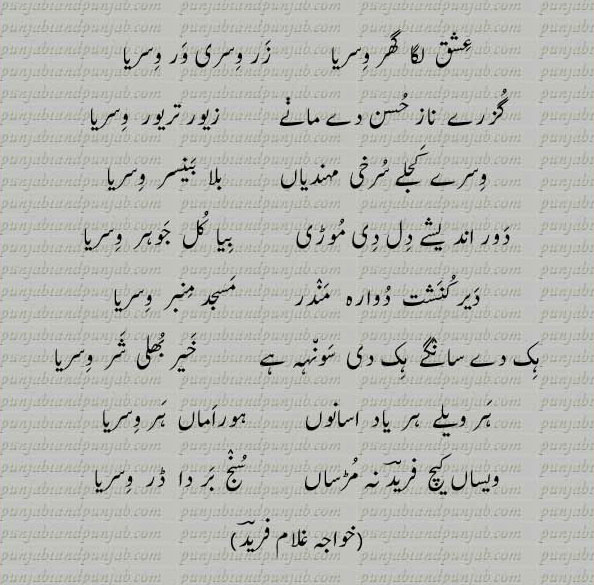 عِشق لگا گھر وِسریا زَر وِسری وَر وِسریا
گُزرے ناز حُسن دے مانے زیور تریور وِسریا
وِسرے کَجلے سُرخی مہندیاں بلا بَینسر وِسریا
دَور اندیشے دِل دِی مُوڑی بِیا کُل جَوہر وِسریا
دَیر کُنَشت دُوارہ مَندر مَسجد مِنبر وِسریا
ہِک دے سانگے ہِک دی سَونہہ ہے خَیر بُھلی شَر وِسریا
ہَر ویلے ہر یاد اسانوں ہور اَماں ہَر وِسریا
ویساں کیچ فریدؔ نہ مُڑساں سُنج بَر دا ڈر وِسریا
(خواجہ غلام فریدؔ)